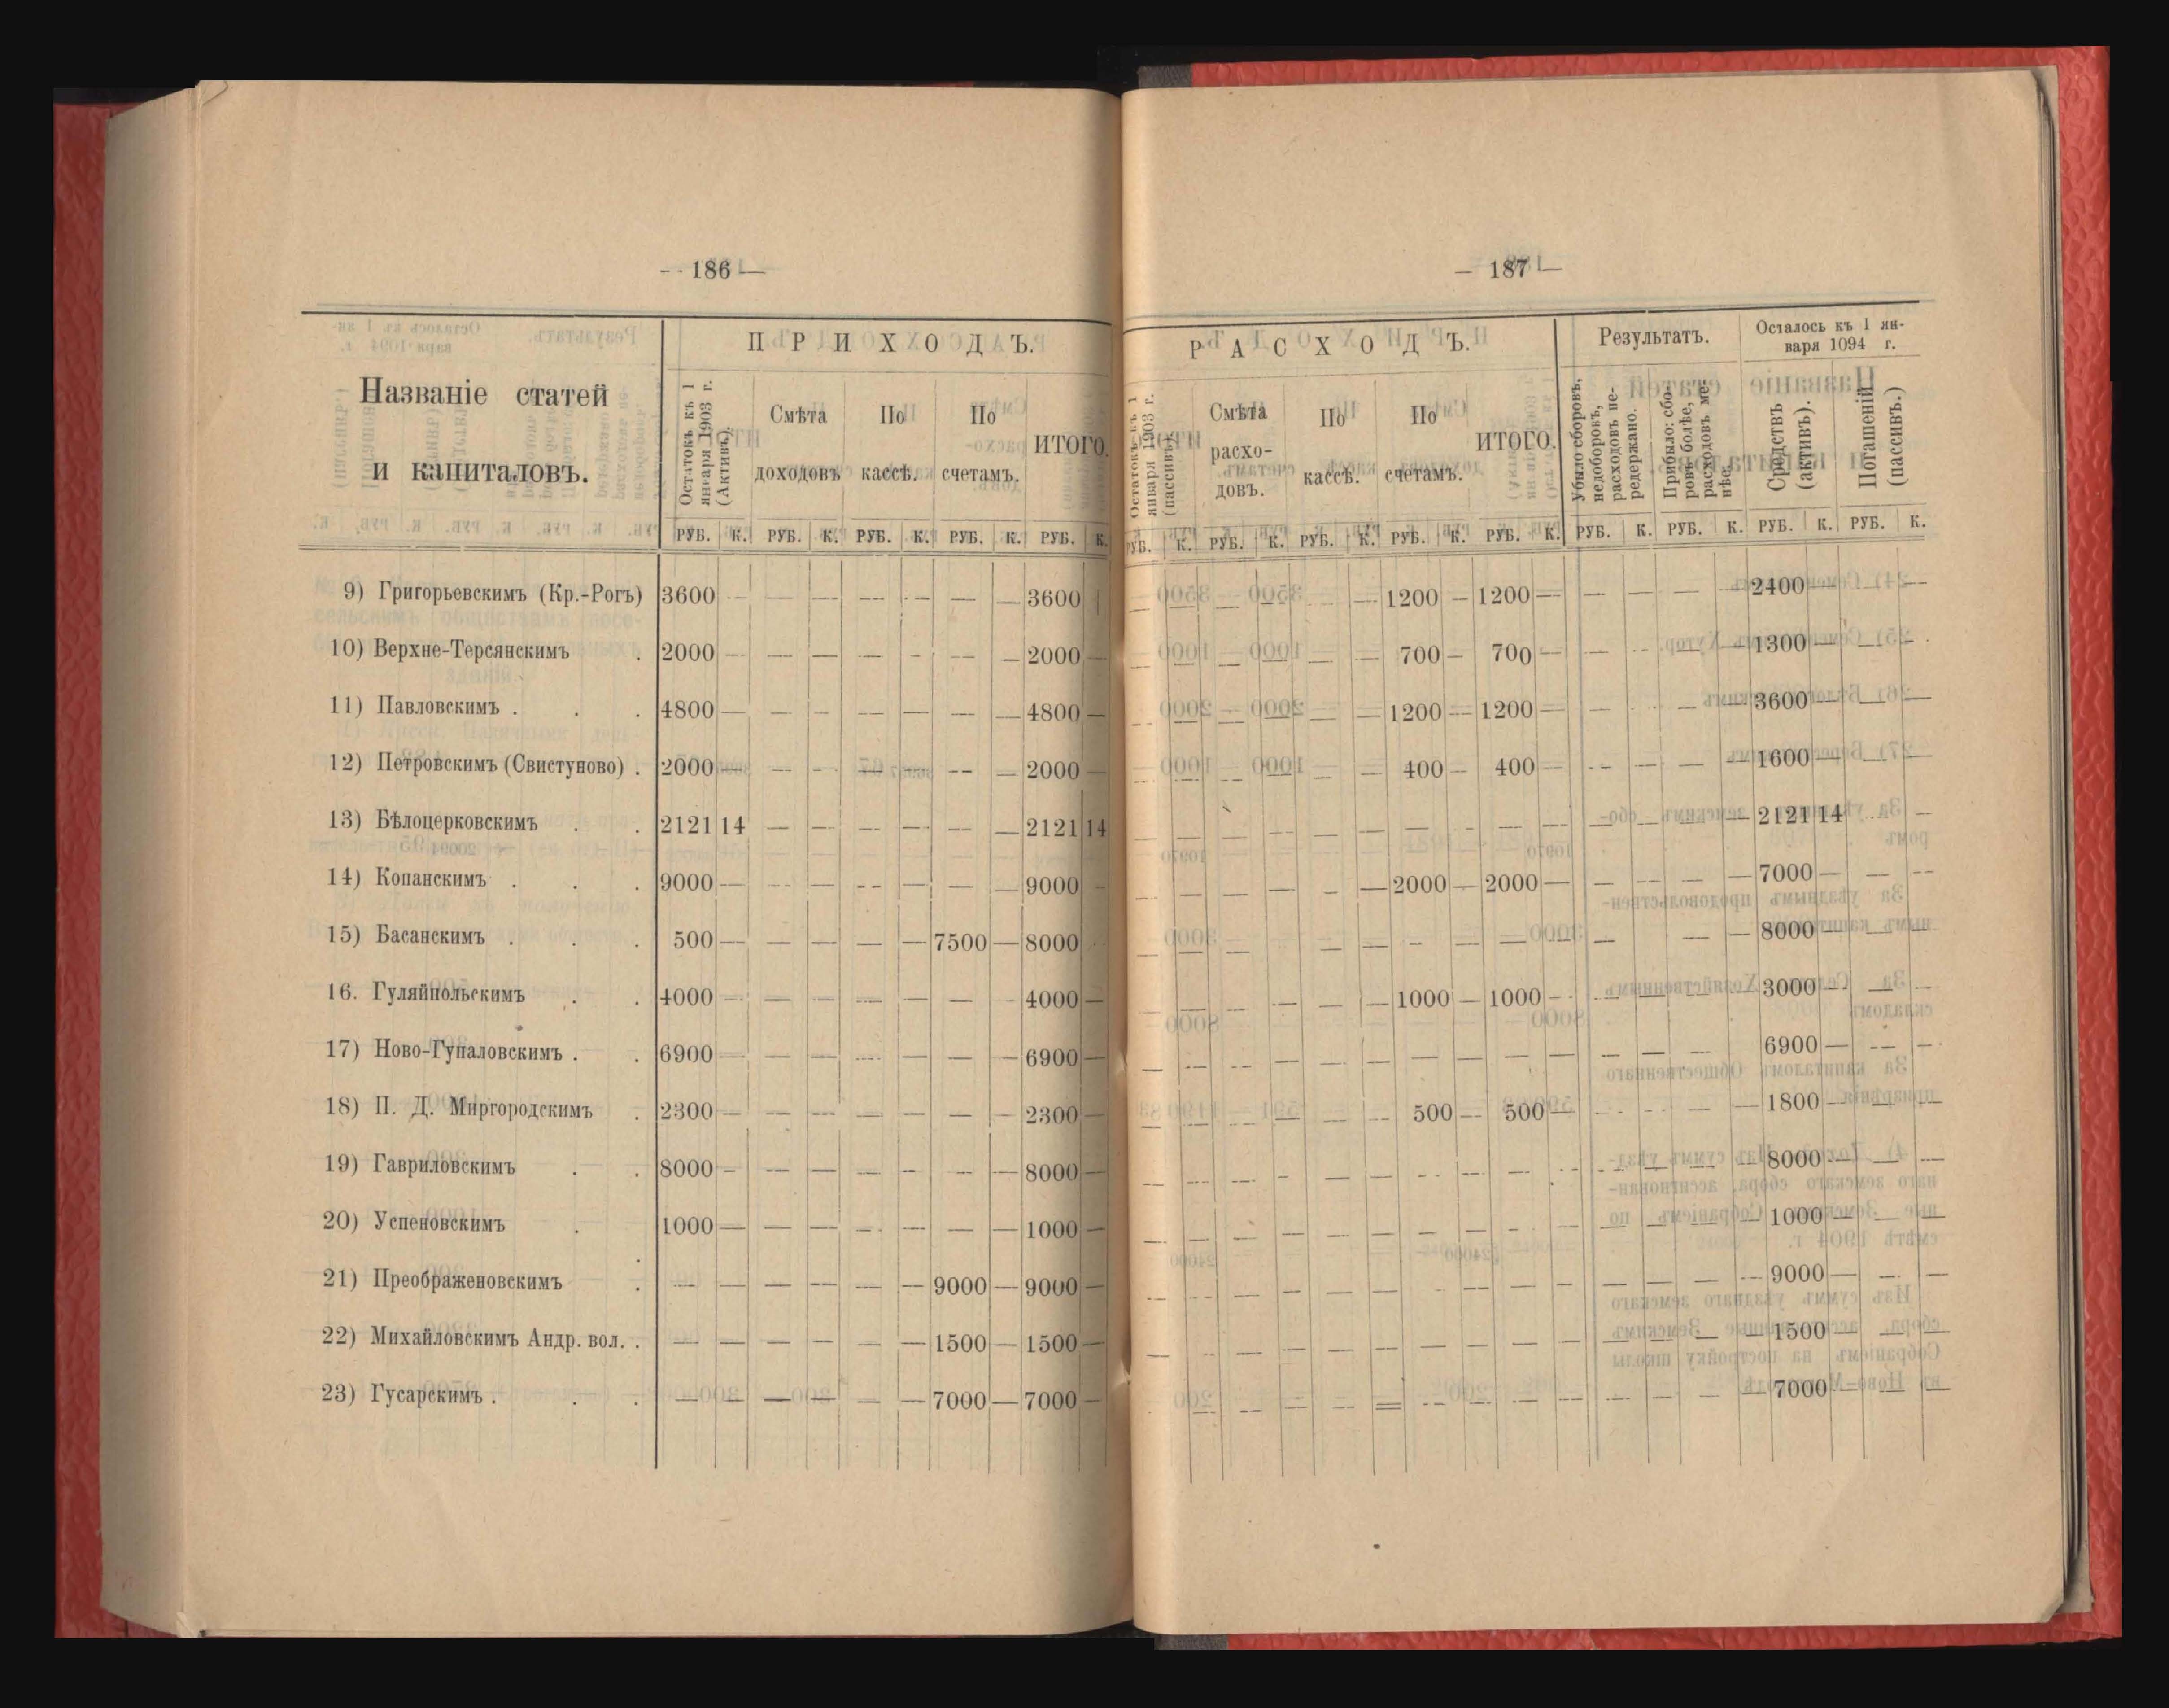 -- 186 —
Названіе статей
и капиталовъ.
ПРИХОДЪ.
Остатокъ къ 1 января 1903 г. (Активъ).
Смѣта доходовъ
По кассѣ.
По счетамъ.
ИТОГО.
РУБ. К. РУБ. К. РУБ. К. РУБ. К. РУБ. К.
9) Григорьевскимъ (Кр.-Рогъ) 3600 — — — — — — — 3600
10) Верхне-Терсянскимъ . 2000 — — — — — — — 2000 —
11) Павловскимъ . . . 4800 — — — — — — — 4800 —
12) Петровскимъ (Свистуново) . 2000 — — — — — — — 2000 —
13) Бѣлоцерковскимъ . . 2121 14 — — — — — — 2121 14
14) Копанскимъ . . . 9000 — — — — — — — 9000 —
15) Басанскимъ . . . 500 — — — — — 7500 — 8000
16. Гуляйпольскимъ . . 4000 — — — — — — - 4000 —
17) Ново-Гупаловскимъ . . 6900 — — — — — — — 6900 —
18) П. Д. Миргородскимъ . 2300 — — — — — — — 2300 —
19) Гавриловскимъ . . 8000 — — — — — — — 8000 —
20) Успеновскимъ . . 1000 — — — — — — — 1000 —
21) Преображеновскимъ . — — — — — — 9000 — 9000 —
22) Михайловскимъ Андр. вол. . — — — — — — 1500 — 1500 —
23) Гусарскимъ . . . — — — — — — 7000 — 7000 —
— 187 —
РАСХОДЪ.
Результатъ.
Осталось къ 1 ян-
варя 1094 г.
Остатокъ къ 1 января 1903 г. (пассивъ).
Смѣта расхо-
довъ.
По кассѣ.
По счетамъ.
ИТОГО.
Убыло сборовъ, недоборовъ, расходовъ пе-
редержано.
Прибыло: сбо-
ровъ болѣе, расходовъ ме-
нѣе.
Средствъ (активъ).
Погашеній (пассивъ.)
РУБ. К. РУБ. К. РУБ. К. РУБ. К. РУБ. К. РУБ. К. РУБ. К. РУБ. К. РУБ. К.
— — — — — — 1200 — 1200 — — — — — 2400 — — —
— — — — — — 700 — 700 — — — — — 1300 — — —
— — — — — — 1200 — 1200 — — — — — 3600 — — —
— — — — — — 400 — 400 — — — — — 1600 — — —
— — — — — — — — — — — — — — 2121 14 — —
— — — — — — 2000 — 2000 — — — — — 7000 — — —
— — — — — — — — — — — — — 8000 — — —
— — — — — — 1000 — 1000 — — — — — 3000 — — —
— — — — — — — — — — — — — 6900 — — —
— — — — — — 500 — 500 — — — — — 1800 — — —
— — — — — — — — — — — — — — 8000 — — —
— — — — — — — — — — — — — — 1000 — — —
— — — — — — — — — — — — — — 9000 — — —
— — — — — — — — — — — — — — 1500 — — —
— — — — — — — — — — — — — — 7000 — — —